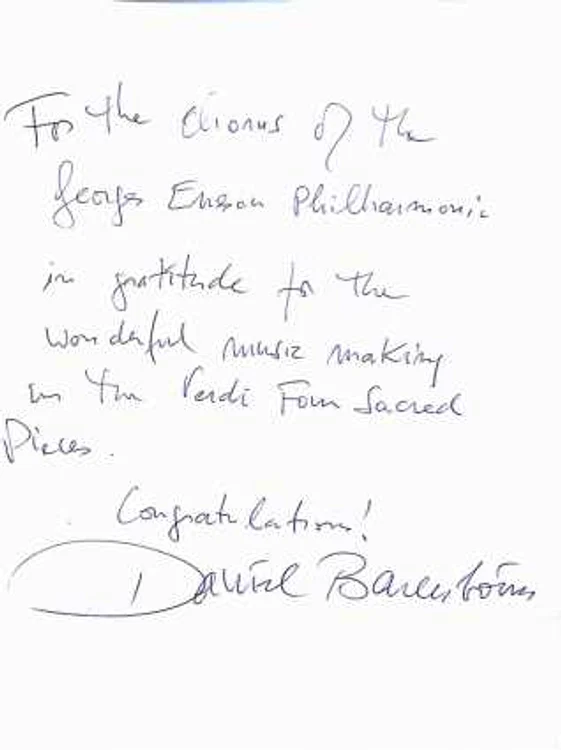 For the chorus of the
George Enescu Philharmonic
in gratitude for the
wonderful music making
in the Verdi Four Sacred
Pieces.
Congratulations!
Daniel Barenboim